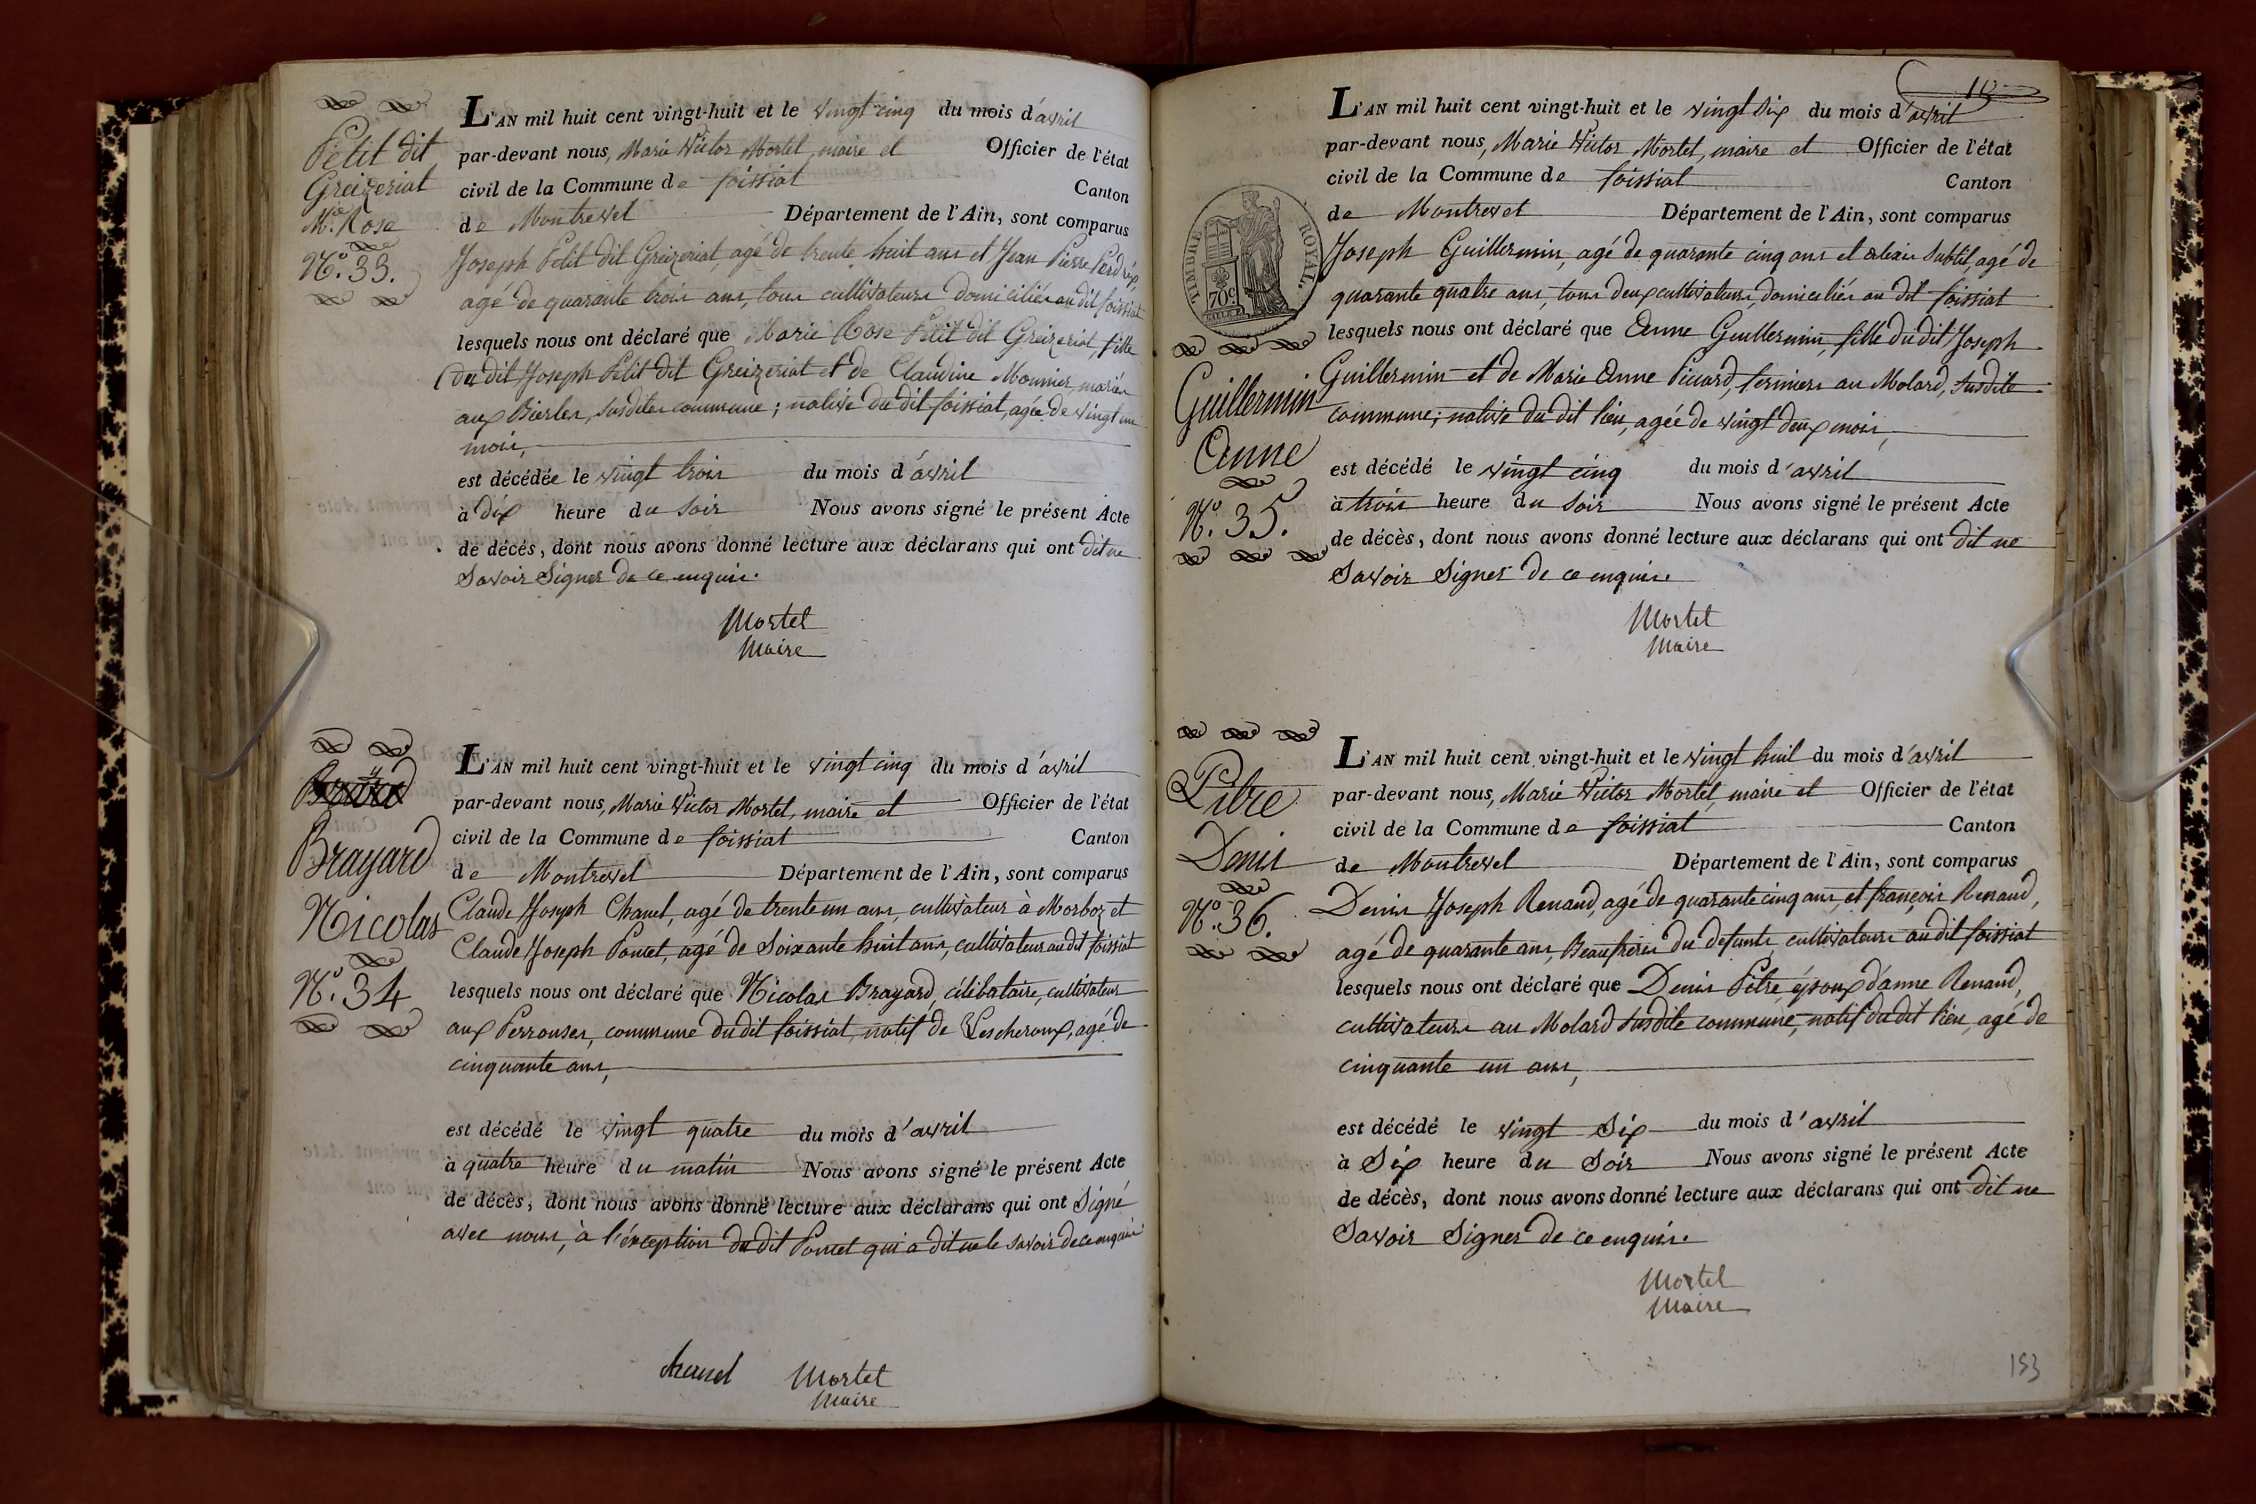 Petit dit
Greizeriat
Mie. Rose
N.º 33.
L'AN mil huit cent vingt-huit et le vingt cinq du mois d'avril
par-devant nous, Marie Victor Mortel, maire et Officier de l'état
civil de la Commune de foissiat Canton
de Montrevel Département de l'Ain, sont comparus
Joseph Petit dit Greizeriat, agé de trente huit ans et Jean Pierre Perdrix,
agé de quarante trois ans, tous cultivateurs domiciliés au dit foissiat
lesquels nous ont déclaré que Marie Rose Petit dit Greizeriat, fille
du dit Joseph Petit dit Greizeriat et de Claudine Monnier, mariés
aux Bierles, susdite commune; native du dit foissiat, agée de vingt un
mois,
est décédée le vingt trois du mois d'avril
à dix heure du soir Nous avons signé le présent Acte
de décès, dont nous avons donné lecture aux déclarans qui ont dit ne
Savoir Signer de ce enquis.
Mortel
Maire
Brayard
Nicolas
N.º 34
L'AN mil huit cent vingt-huit et le vingt cinq du mois d'avril
par-devant nous, Marie Victor Mortel, maire et Officier de l'état
civil de la Commune de foissiat Canton
de Montrevel Département de l'Ain, sont comparus
Claude Joseph Chanel, agé de trente un ans, cultivateur à Marboz et
Claude Joseph Poncet, agé de Soixante huit ans, cultivateur au dit foissiat
lesquels nous ont déclaré que Nicolas Brayard, célibataire, cultivateur
aux Perrouses, commune du dit foissiat, natif de Lescheroux, agé de
cinquante ans,
est décédé le vingt quatre du mois d'avril
à quatre heure du matin Nous avons signé le présent Acte
de décès, dont nous avons donné lecture aux déclarans qui ont Signé
avec nous, à l'éxception du dit Poncet qui a dit ne le savoir de ce enquis
Chanel Mortel
Maire
10
TIMBRE ROYAL.
70c.
Guillermin
Anne
N.º 35.
L'AN mil huit cent vingt-huit et le vingt Six du mois d'avril
par-devant nous, Marie Victor Mortel, maire et Officier de l'état
civil de la Commune de foissiat Canton
de Montrevel Département de l'Ain, sont comparus
Joseph Guillermin, agé de quarante cinq ans et Subtil, agé de
quarante quatre ans, tous deux cultivateurs, domiciliés au dit foissiat
lesquels nous ont déclaré que Anne Guillermin, fille du dit Joseph
Guillermin et de Marie Anne Piccard, fermiers au Molard, susdite
commune; native du dit lieu, agée de vingt deux mois,
est décédé le vingt cinq du mois d'avril
à trois heure du soir Nous avons signé le présent Acte
de décès, dont nous avons donné lecture aux déclarans qui ont dit ne
Savoir Signer de ce enquis.
Mortel
Maire
Pitre
Denis
N.º 36.
L'AN mil huit cent vingt-huit et le vingt huit du mois d'avril
par-devant nous, Marie Victor Mortel, maire et Officier de l'état
civil de la Commune de foissiat Canton
de Montrevel Département de l'Ain, sont comparus
Denis Joseph Renaud, agé de quarante cinq ans, et françois Renaud,
agé de quarante ans, Beaufrères du defunt, cultivateurs au dit foissiat
lesquels nous ont déclaré que Denis Pitre époux d'anne Renaud,
cultivateurs au Molard susdite commune, natif du dit lieu, agé de
cinquante un ans,
est décédé le vingt Six du mois d'avril
à Six heure du Soir Nous avons signé le présent Acte
de décès, dont nous avons donné lecture aux déclarans qui ont dit ne
Savoir Signer de ce enquis.
Mortel
Maire
153